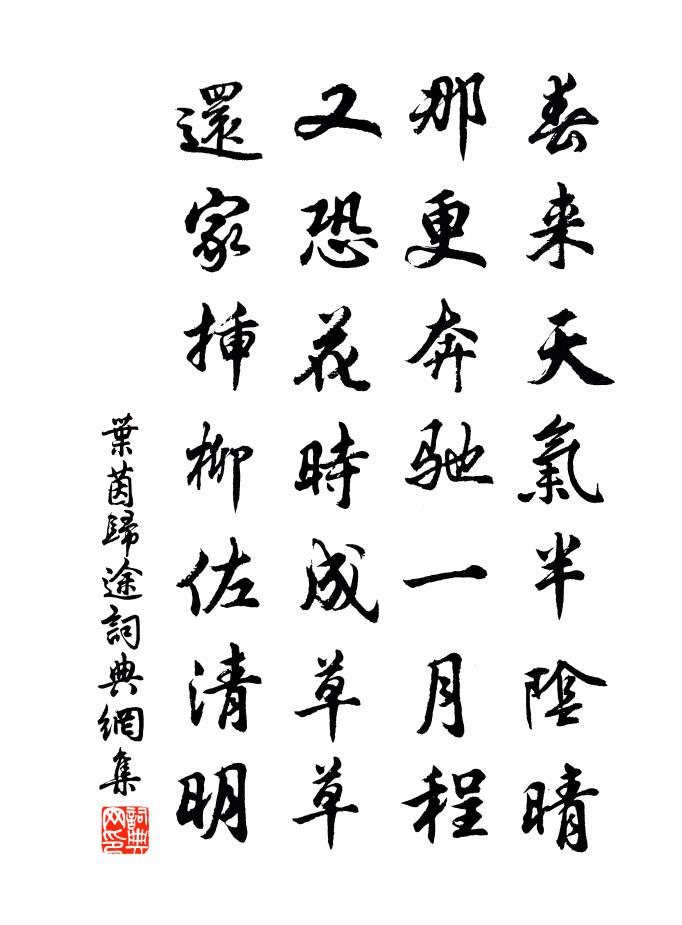 春来天氣半陰晴
那更奔馳一月程
又恐花時成草草
還家挿柳佐清明
葉茵歸途詞典網集
詞典网印